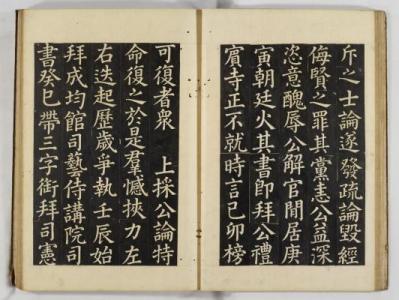 斥之士論遂發疏論毀經
侮賢之罪其黨恚公益深
恣意醜辱公解官閒居庚
寅朝廷火其書卽拜公禮
賓寺正不就時言己卯榜
可復者衆 上採公論特
命復之於是羣憾挾力左
右迭起歷歲爭執壬辰始
拜成均館司藝侍講院司
書癸巳帶三字銜拜司憲